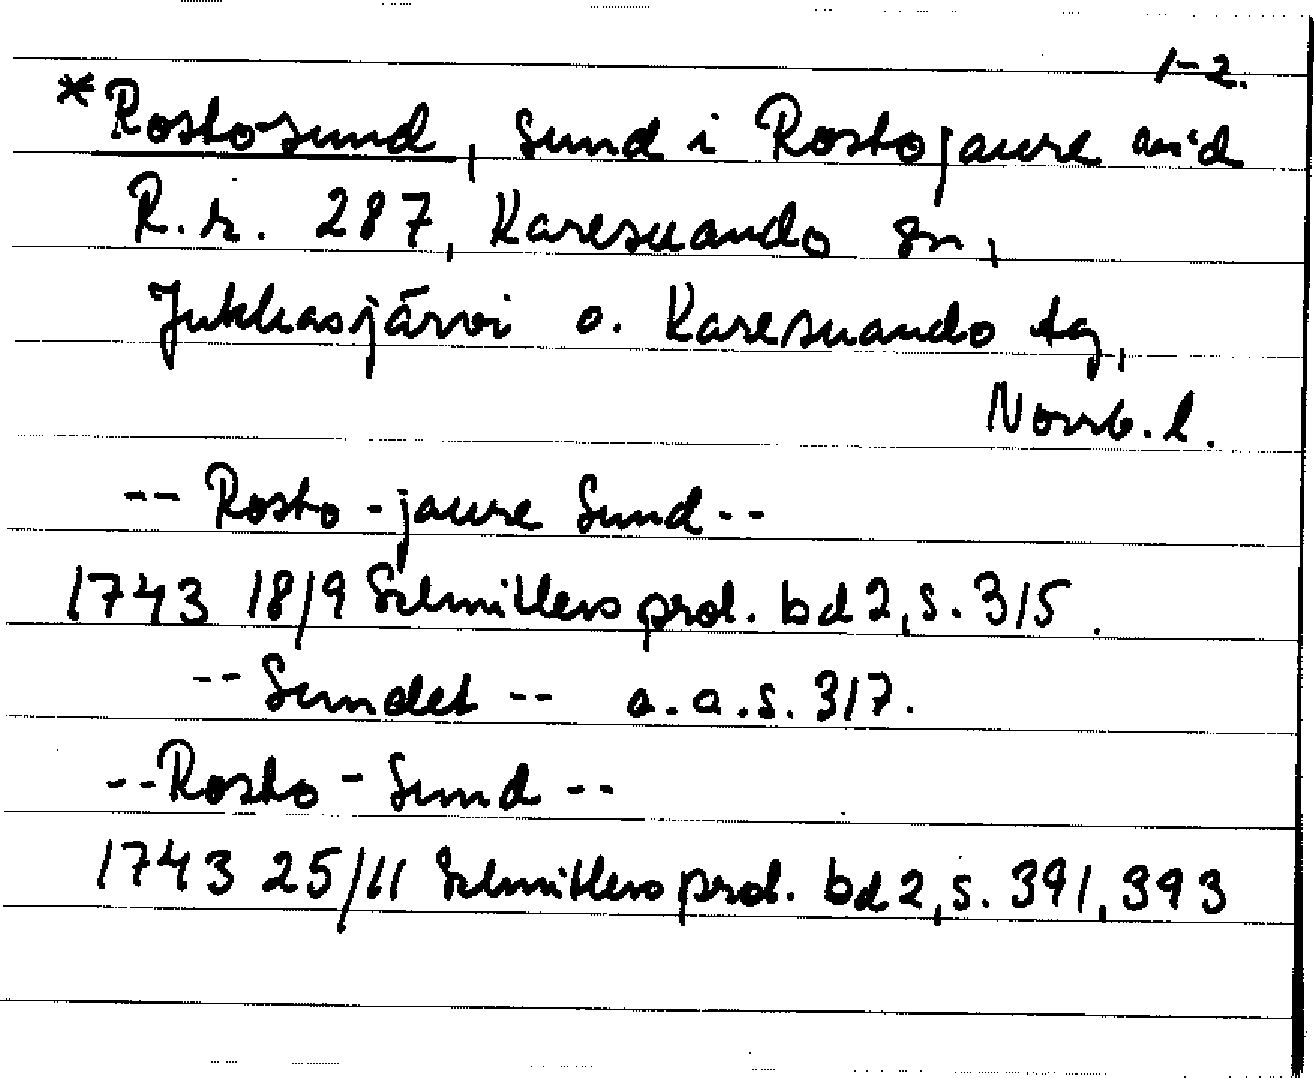 1-2.
*Rostosund, sund i Rostojaure vid
R.r. 287, Karesuando sn,
Jukkasjärvi o. Karesuando tg,
Norrb. l.
-- Rosto-jaure Sund --
1743 18/9 Schnitlers prot. bd 2, s. 315.
-- Sundet -- a.a.s. 317.
-- Rosto-Sund --
1743 25/11 Schnitlers prot. bd 2, s. 391, 393